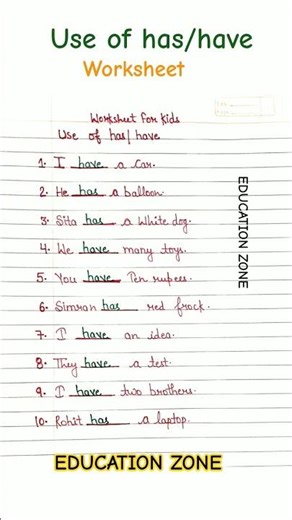 Use of has/have
Worksheet
Worksheet for kids
Use of has/have
1. I have a car.
2. He has a balloon.
3. Sita has a White dog.
4. We have many toys.
5. You have Ten rupees.
6. Simran has red frock.
7. I have an idea.
8. They have a test.
9. I have two brothers.
10. Rohit has a laptop.
EDUCATION ZONE
EDUCATION ZONE